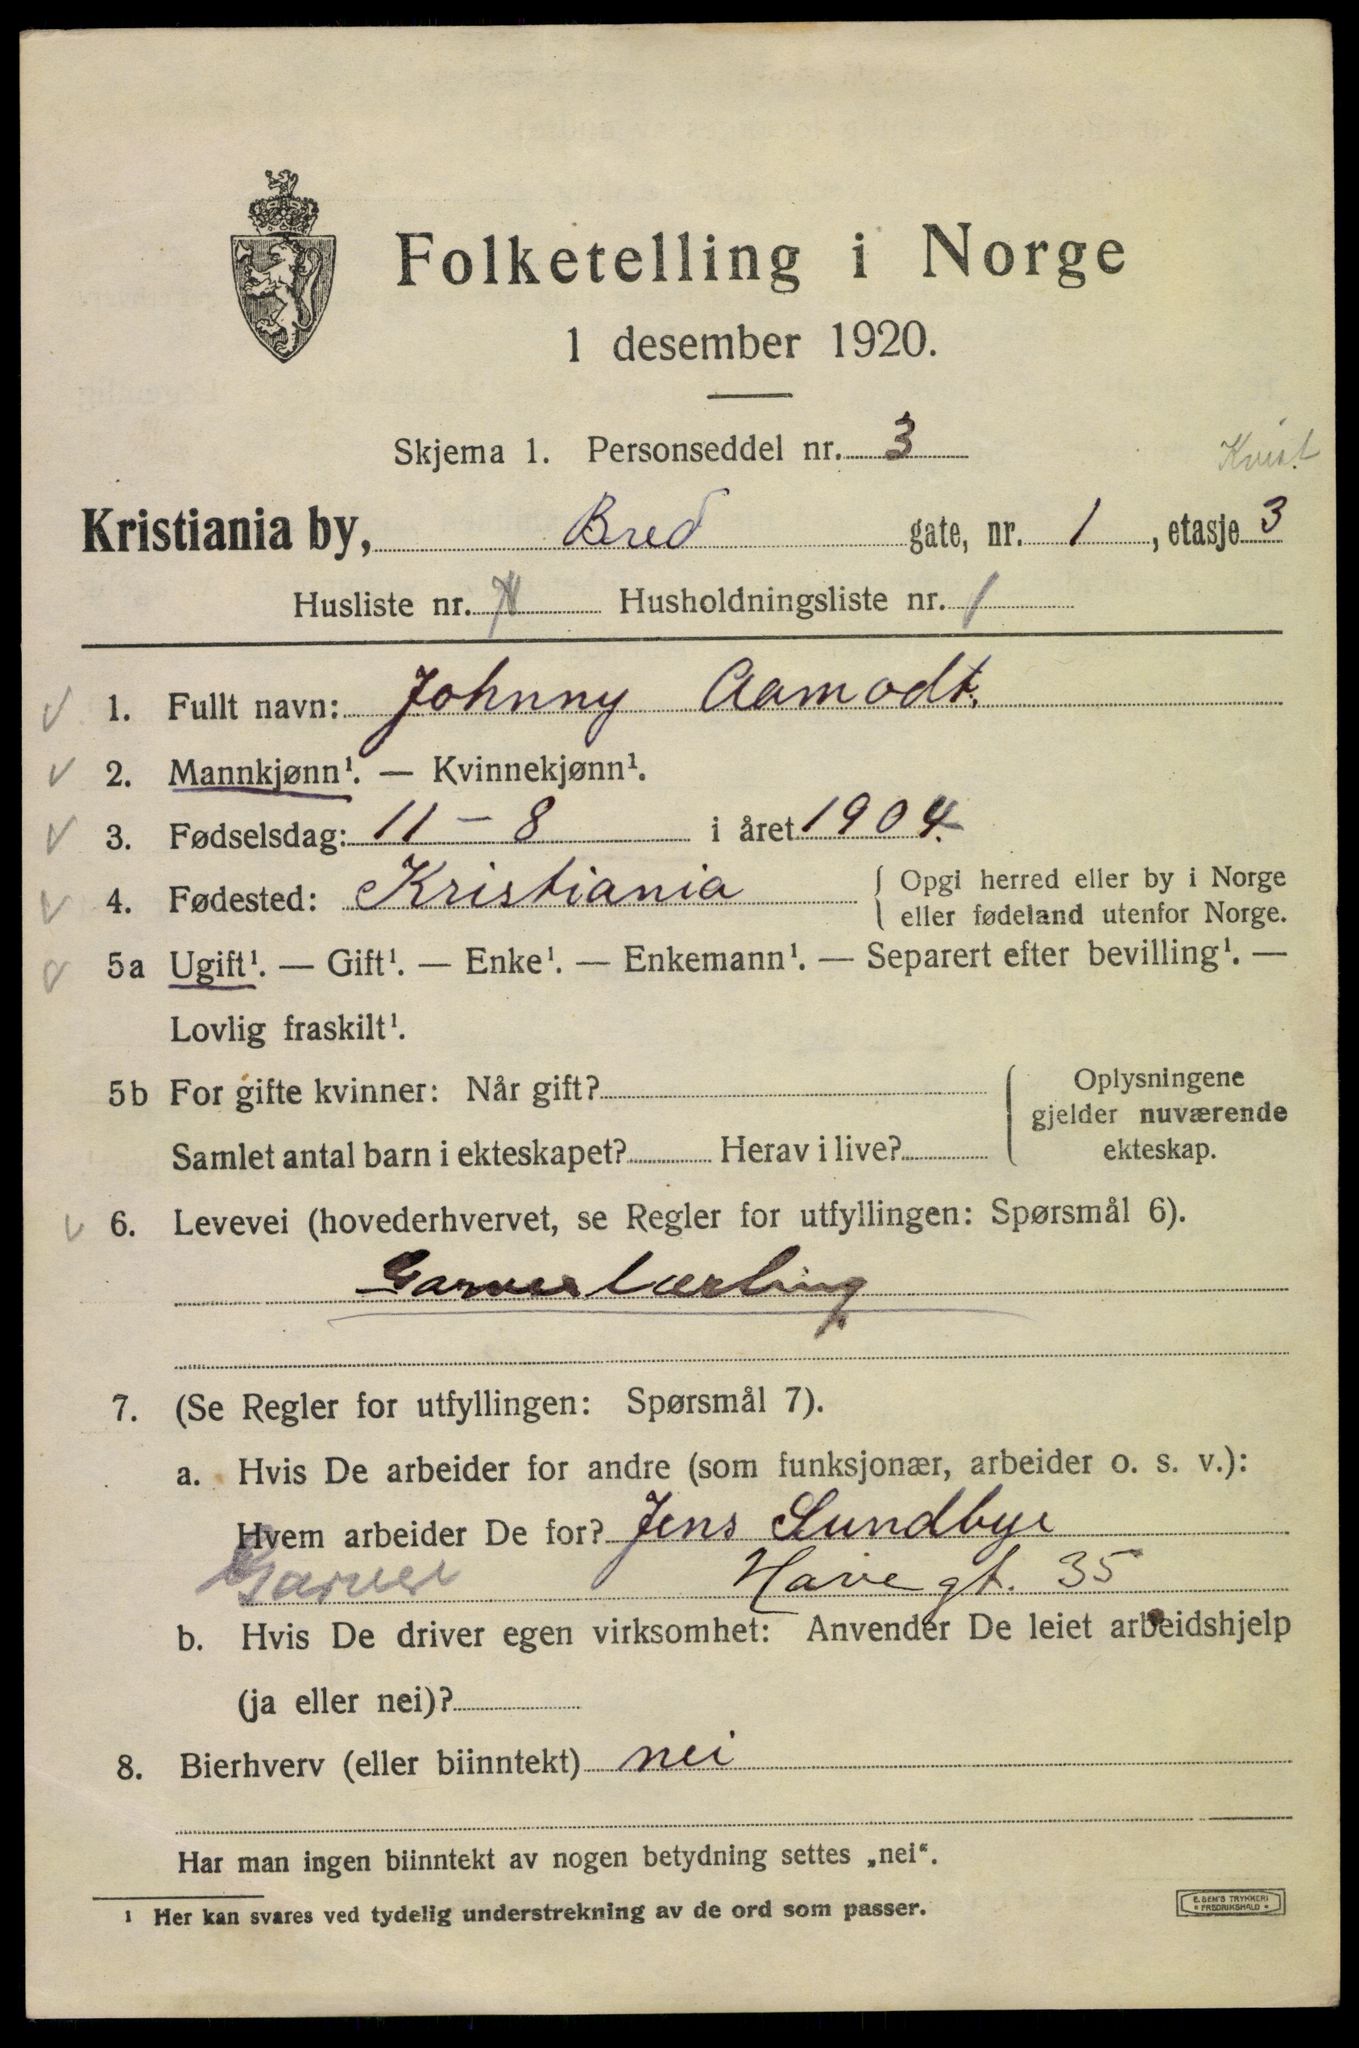 Folketelling i Norge
1 desember 1920.
Skjema 1. Personseddel nr. 3
Kvist
Kristiania by, Bred gate, nr. 1, etasje 3
Husliste nr. Husholdningsliste nr. 1
1. Fullt navn: Johnny Aamodt.
2. Mannkjønn¹. — Kvinnekjønn¹.
3. Fødselsdag: 11 – 8 i året 1904.
4. Fødested: Kristiania { Opgi herred eller by i Norge
eller fødeland utenfor Norge.
5a Ugift¹. — Gift¹. — Enke¹. — Enkemann¹. — Separert efter bevilling¹. —
Lovlig fraskilt¹.
5b For gifte kvinner: Når gift? { Oplysningene
gjelder nuværende
Samlet antal barn i ekteskapet? Herav i live? ekteskap.
6. Levevei (hovederhvervet, se Regler for utfyllingen: Spørsmål 6).
Garverlærling
7. (Se Regler for utfyllingen: Spørsmål 7).
a. Hvis De arbeider for andre (som funksjonær, arbeider o. s. v.):
Hvem arbeider De for? Jens Sundbye
Garver Havegt. 35
b. Hvis De driver egen virksomhet: Anvender De leiet arbeidshjelp
(ja eller nei)?
8. Bierhverv (eller biinntekt) nei
Har man ingen biinntekt av nogen betydning settes „nei“.
¹ Her kan svares ved tydelig understrekning av de ord som passer.
E. SEM'S TRYKKERI
* FREDRIKSHALD *